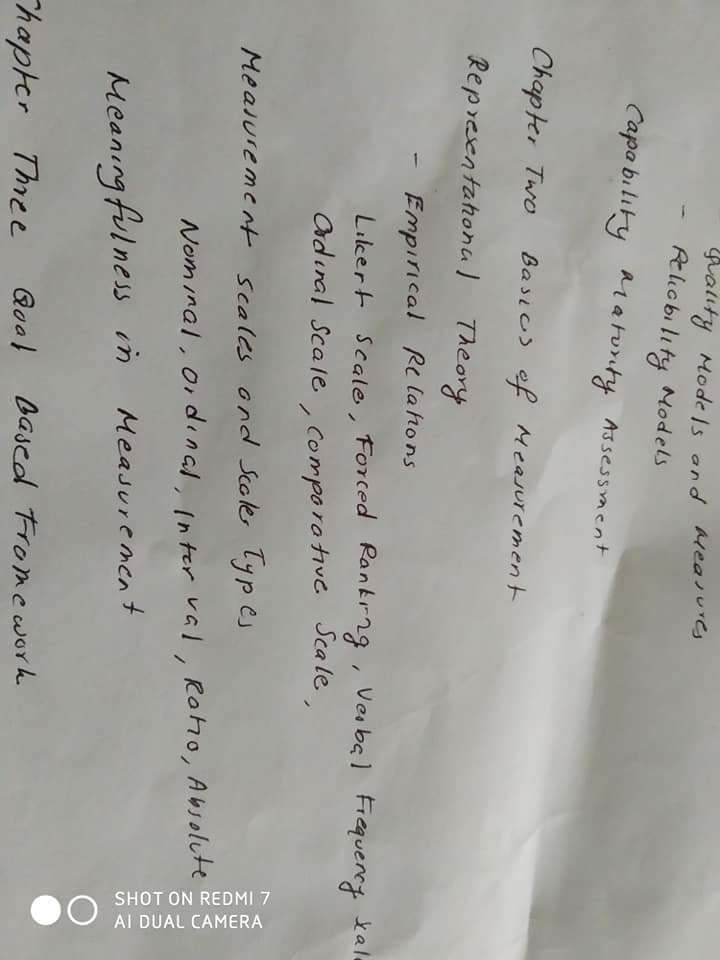 Quality Models and Measures
- Reliability Models
Capability Maturity Assessment
Chapter Two Basics of Measurement
Representational Theory
- Empirical Relations
Likert Scale, Forced Ranking, Verbal Frequency Scal
Ordinal Scale, Comparative Scale,
Measurement scales and Scales Types
Nominal, Ordinal, Interval, Ratio, Absolute
Meaningfulness in Measurement
Chapter Three Goal Based Framework
SHOT ON REDMI 7
AI DUAL CAMERA